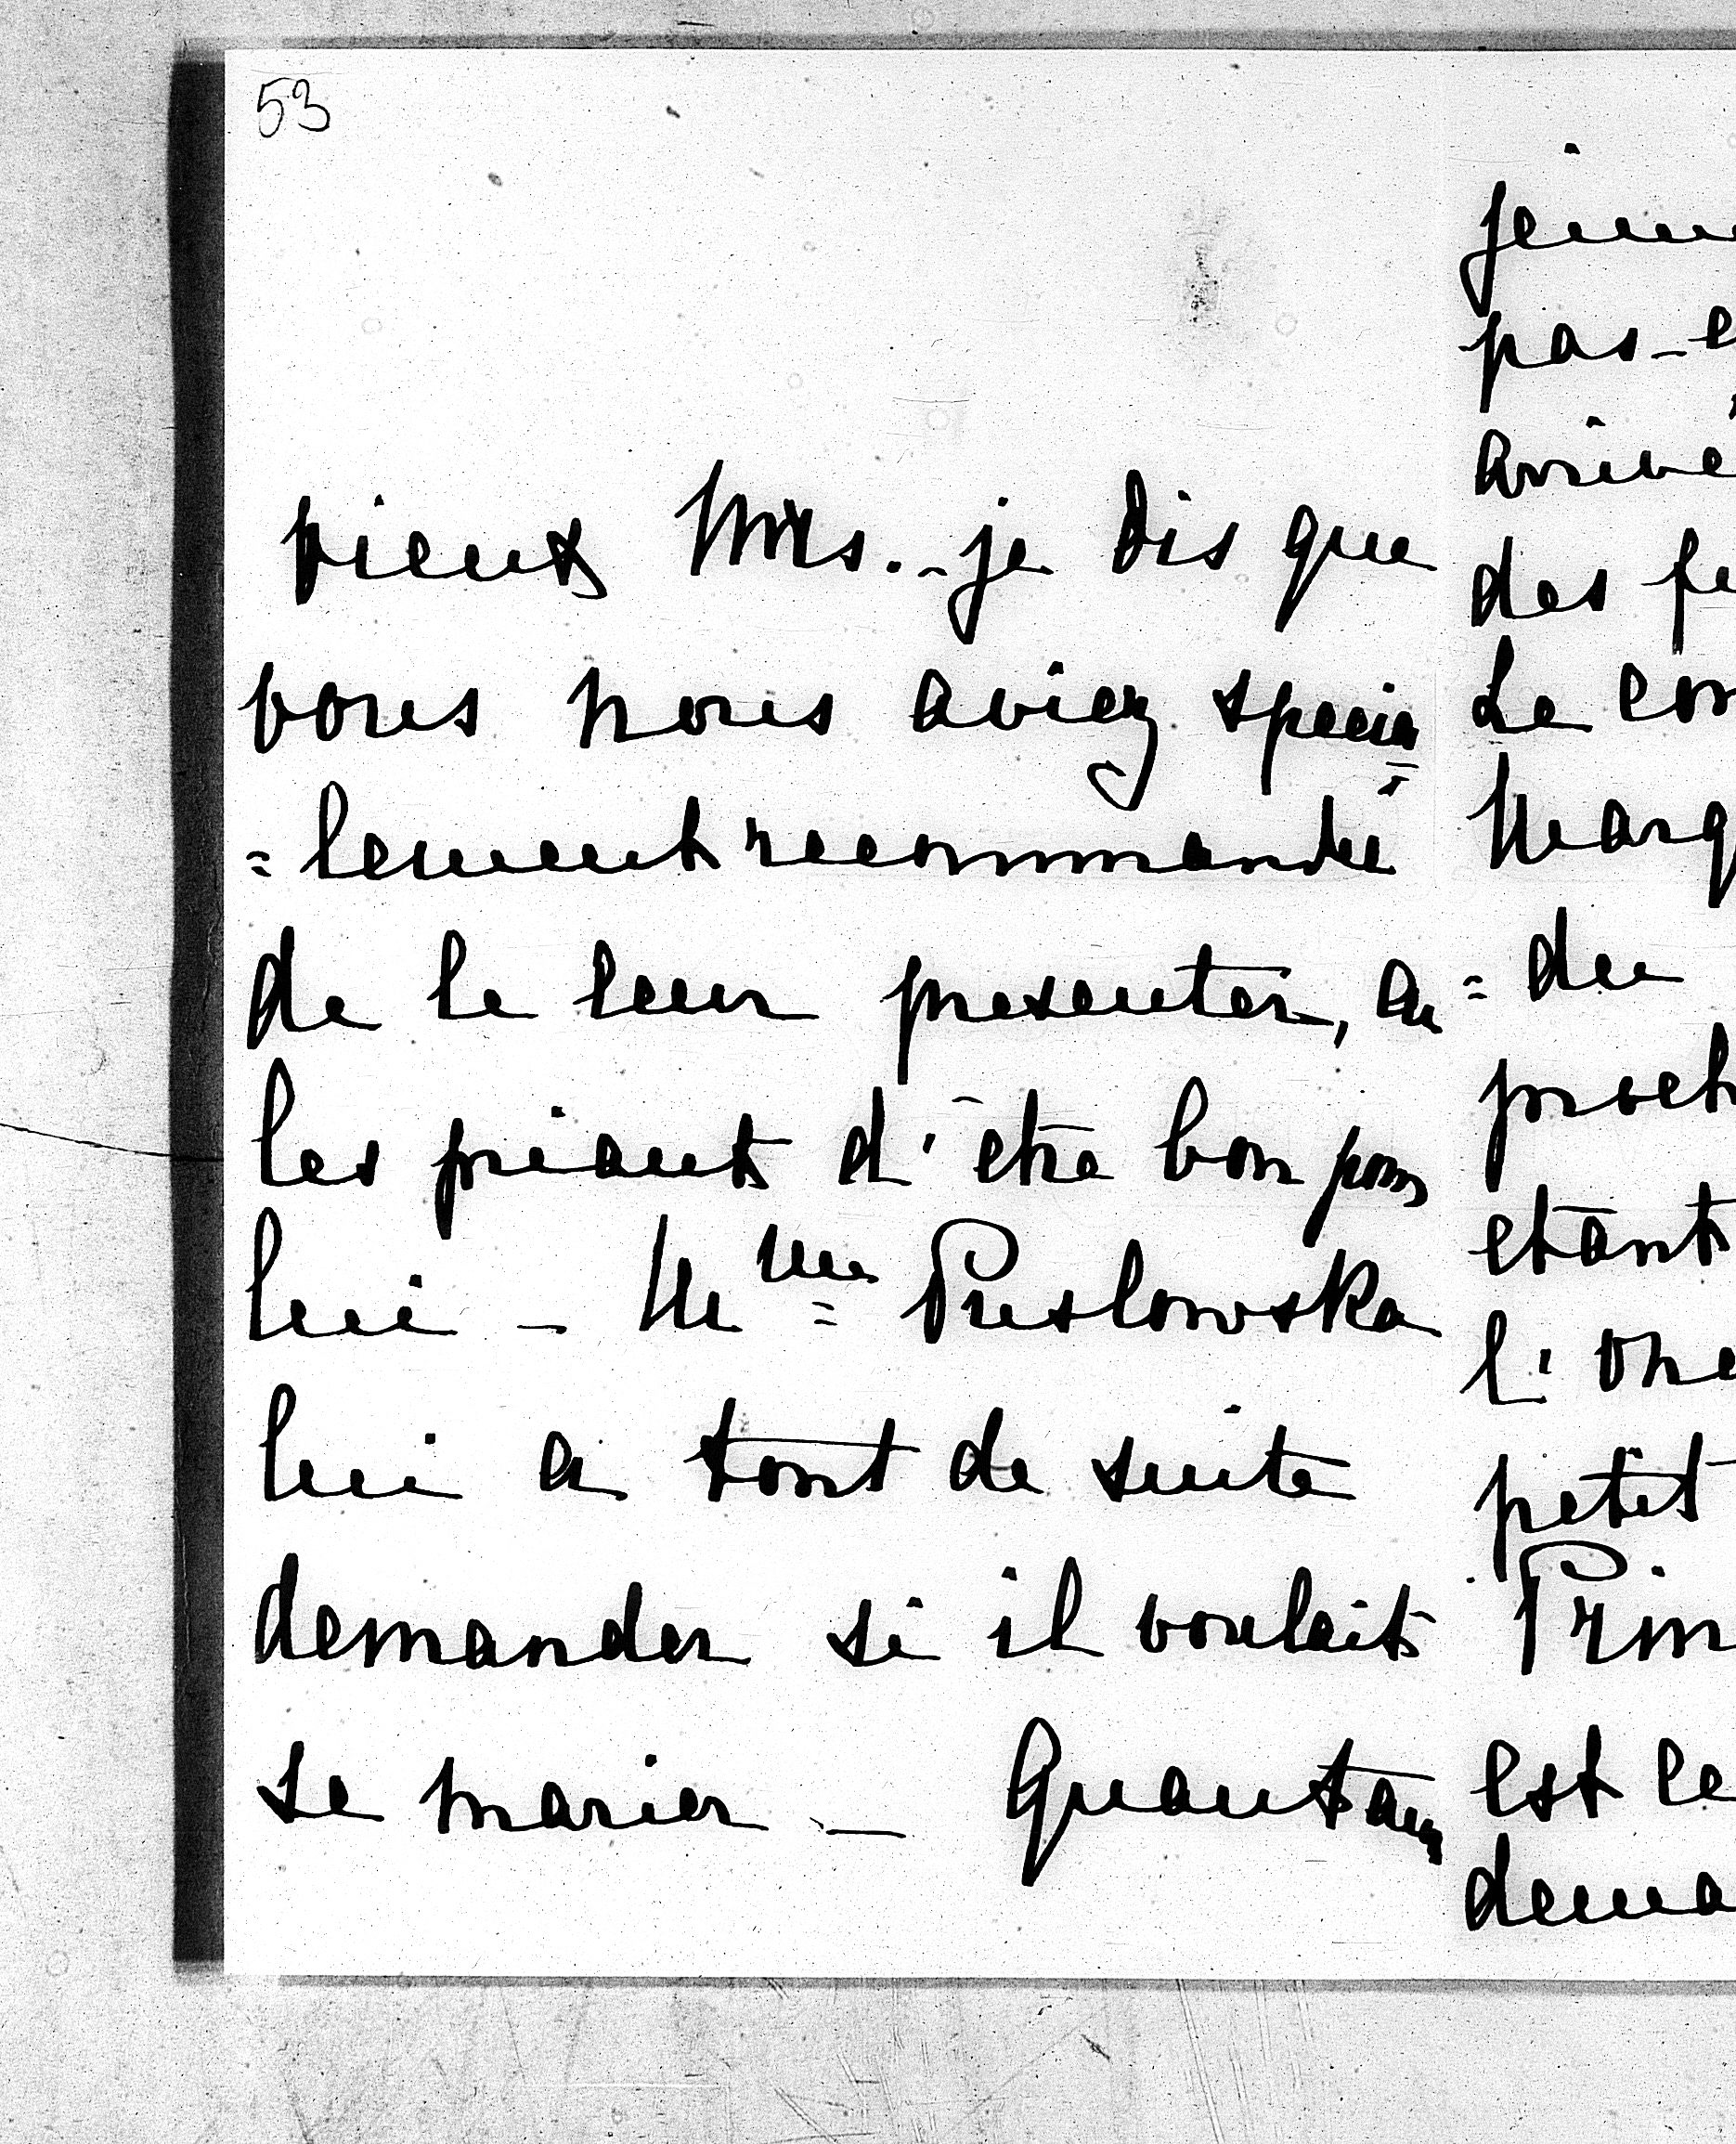 53
vieux Mrs. - je dis que
vous nous aviez specia
=lement recommandé
de le leur presenter, en
les priant d'être bon pour
lui - Mme Puslowska
lui a tout de suite
demander si il voulait
se marier - Quant aux
jeune
pas - e
arrive
des fe
Le con
Marq
= du
proch
etant
l'one
petit
Prin
est le
dema